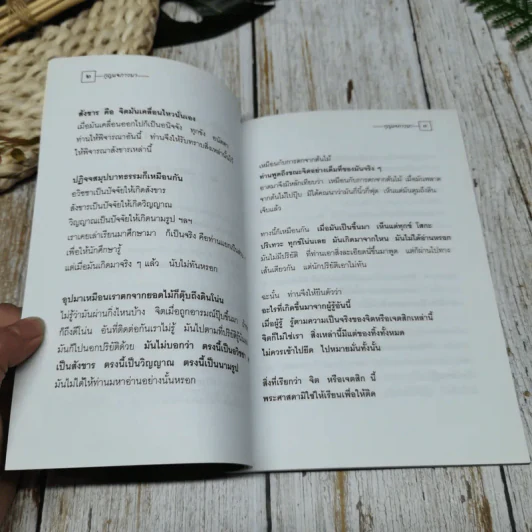 กุญแจภาวนา
สังขาร คือ จิตมันเคลื่อนไหวนั่นเอง
เมื่อมันเคลื่อนออกไปก็เป็นอนิจจัง ทุกขัง อนัตตา
ให้พิจารณาอันนี้ ท่านจึงให้รับทราบสิ่งเหล่านี้ไว้
ให้พิจารณาสังขารเหล่านี้
ปฏิจจสมุปบาทธรรมก็เหมือนกัน
อวิชชาเป็นปัจจัยให้เกิดสังขาร
สังขารเป็นปัจจัยให้เกิดวิญญาณ
วิญญาณเป็นปัจจัยให้เกิดนามรูป ฯลฯ
เราเคยเล่าเรียนมาศึกษามา ก็เป็นจริง คือท่านแยกเป็น
เพื่อให้นักศึกษารู้
แต่เมื่อมันเกิดมาจริง ๆ แล้ว นับไม่ทันหรอก
อุปมาเหมือนเราตกจากยอดไม้ก็ตุ๊บถึงดินโน่น
ไม่รู้ว่ามันผ่านกิ่งไหนบ้าง จิตเมื่อถูกอารมณ์ปุ๊บขึ้นมา
ก็ถึงดีโน่น อันที่ติดต่อกันเราไม่รู้ มันไปตามที่ปริยัติรู้
มันก็ไปนอกปริยัติด้วย มันไม่บอกว่า ตรงนี้เป็นอวิชชา
เป็นสังขาร ตรงนี้เป็นวิญญาณ ตรงนี้เป็นนามรูป
มันไม่ได้ให้ท่านมหาอ่านอย่างนั้นหรอก
กุญแจภาวนา
เหมือนกับการตกจากต้นไม้
ท่านพูดถึงขณะจิตอย่างเต็มที่ของมันจริง ๆ
อาตมาจึงมีหลักเทียบว่า เหมือนกับการตกจากต้นไม้ เมื่อมันพลาด
จากต้นไม้ไปปุ๊บ มิได้คณนาว่ามันกี่นิ้วกี่ฟุต เห็นแต่มันตูมถึงดิน
เจ็บแล้ว
ทางนี้ก็เหมือนกัน เมื่อมันเป็นขึ้นมา เห็นแต่ทุกข์ โสกะ
ปริเทวะ ทุกข์โน่นเลย มันเกิดมาจากไหน มันไม่ได้อ่านหรอก
มันไม่มีปริยัติ ที่ท่านเอาสิ่งละเอียดนี้ขึ้นมาพูด แต่ก็ผ่านไปทาง
เส้นเดียวกัน แต่นักปริยัติเอาไม่ทัน
ฉะนั้น ท่านจึงให้ยืนตัวว่า
อะไรที่เกิดขึ้นมาจากผู้รู้อันนี้
เมื่อผู้รู้ รู้ตามความเป็นจริงของจิตหรือเจตสิกเหล่านี้
จิตก็ไม่ใช่เรา สิ่งเหล่านี้มีแต่ของทิ้งทั้งหมด
ไม่ควรเข้าไปยึด ไปหมายมั่นทั้งนั้น
สิ่งที่เรียกว่า จิต หรือเจตสิก นี้
พระศาสดามิใช่ให้เรียนเพื่อให้ติด